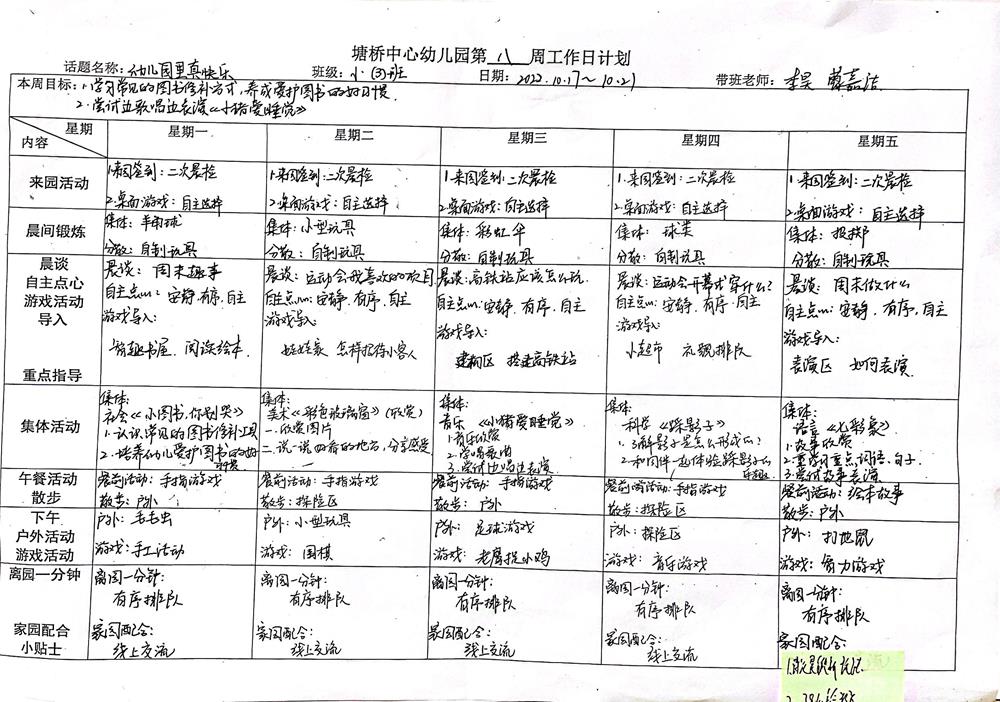 塘桥中心幼儿园第 八 周工作日计划
话题名称：幼儿园里真快乐 班级：小(3)班 日期：2022.10.17～10.21 带班老师：李昊
本周目标：1.学习常见的图书修补方式，养成爱护图书的好习惯
2.尝试边歌唱边表演《小猪爱睡觉》
星期 内容 星期一 星期二 星期三 星期四 星期五
来园活动 1.来园签到：二次晨检 1.来园签到：二次晨检 1.来园签到：二次晨检 1.来园签到：二次晨检 1.来园签到：二次晨检
2.桌面游戏：自主选择 2.桌面游戏：自主选择 2.桌面游戏：自主选择 2.桌面游戏：自主选择 2.桌面游戏：自主选择
晨间锻炼 集体：羊角球 集体：小型玩具 集体：彩虹伞 集体：球类 集体：投掷
分散：自制玩具 分散：自制玩具 分散：自制玩具 分散：自制玩具 分散：自制玩具
晨谈 晨谈：周末趣事 晨谈：运动会我喜欢的项目 晨谈：高铁站应该怎么玩 晨谈：运动会开幕式穿什么？ 晨谈：周末做什么
自主点心 自主点心：安静、有序、自主 自主点心：安静、有序、自主 自主点心：安静、有序、自主 自主点心：安静、有序、自主 自主点心：安静、有序、自主
游戏活动 游戏导入： 游戏导入： 游戏导入： 游戏导入： 游戏导入：
导入
重点指导 书屋 阅读绘本 娃娃家 怎样招待小客人 建构区 搭建高铁站 小超市 礼貌排队 表演区 如何表演
集体活动 集体： 集体： 集体： 集体： 集体：
社会《小图书，你别哭》 美术《彩色玻璃窗》（欣赏） 音乐《小猪爱睡觉》 科学《踩影子》 语言《七彩象》
1.认识常见的图书修补工具 一、欣赏图片 1.音乐欣赏 1.了解影子是怎么形成的？ 1.故事欣赏
2.培养幼儿爱护图书的好习惯 二、说一说四周的地方，分享感受 2.学唱歌曲 2.和同伴一起体验踩影子的乐趣 2.重点词语、句子
3.尝试边唱边表演 3.尝试故事表演
午餐活动 餐前活动：手指游戏 餐前活动：手指游戏 餐前活动：手指游戏 餐前活动：手指游戏 餐前活动：绘本故事
散步 散步：户外 散步：探险区 散步：户外 散步：探险区 散步：户外
下午 户外：毛毛虫 户外：小型玩具 户外：足球游戏 户外：探险区 户外：打地鼠
户外活动
游戏活动 游戏：手工活动 游戏：围棋 游戏：老鹰捉小鸡 游戏：音乐游戏 游戏：智力游戏
离园一分钟 离园一分钟： 离园一分钟： 离园一分钟： 离园一分钟： 离园一分钟：
有序排队 有序排队 有序排队 有序排队 有序排队
家园配合 家园配合： 家园配合： 家园配合： 家园配合： 家园配合：
小贴士 线上交流 线上交流 线上交流 线上交流